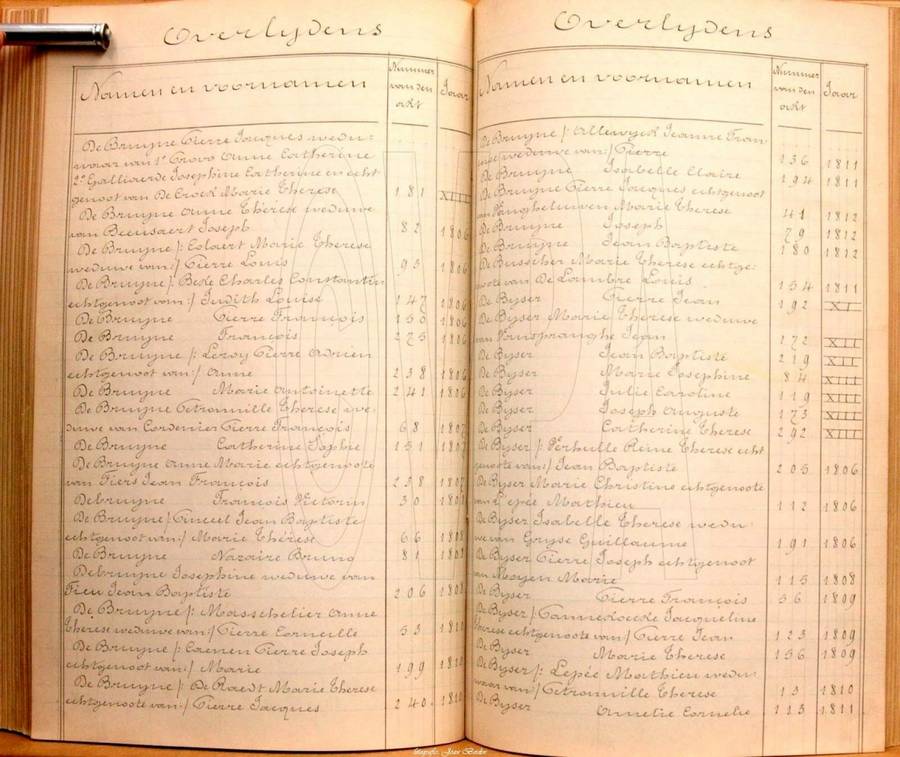 Overlydens
Namen en voornamen
Nummer van den akt
Jaar
De Bruyne Pierre Jacques wedu-
waar van 1° Crovo Anne Catherine
2° Galliaerde Josephine Catherine en echt
genoot van De Crock Marie Therese 181 XIII
De Bruyne Anne Thérèse weduwe
van Beeusaert Joseph 82 1806
De Bruyne /: Eclaert Marie Therese
weduwe van :/ Pierre Louis 93 1806
De Bruyne /: Beke Charles Constantin
echtgenoot van :/ Judith Louise 147 1806
De Bruyne Pierre François 150 1806
De Bruyne François 275 1806
De Bruyne /: Leroy Pierre Adrien
echtgenoot van :/ Anne 238 1806
De Bruyne Marie Antoinette 241 1806
De Bruyne Petronnille Therese we-
duwe van Cordenier Pierre François 68 1807
De Bruyne Catherine Sophie 151 1807
De Bruyne Anne Marie echtgenoote
van Fiers Jean François 238 1807
Debruyne François Victorin 30 1808
De Bruyne /: Jean Baptiste
echtgenoot van :/ Marie Thérèse 66 1808
De Bruyne Nazaire Bruno 81 1808
Debruyne Josephine weduwe van
Fieu Jean Baptiste 206 1808
De Bruyne /: Masschelier Anne
Therese weduwe van :/ Pierre Corneille 53 1810
De Bruyne /: Caenen Pierre Joseph
echtgenoot van :/ Marie 199 1810
De Bruyne /: De Raedt Marie Therese
echtgenoot van :/ Pierre Jacques 240 1810
Overlydens
Namen en voornamen
Nummer van den akt
Jaar
De Bruyne /: Allewyck Jeanne Fran
weduwe van :/ Pierre 136 1811
De Bruyne Isabelle Claire 194 1811
De Bruyne Pierre Jacques echtgenoot
van Vangheluwen Marie Therese 41 1812
De Bruyne Joseph 79 1812
De Bruyne Jean Baptiste 180 1812
De Busscher Marie Therese echtge-
noote van De Lambre Louis 154 1811
De Byser Pierre Jean 192 XI
De Byser Marie Therese weduwe
van Vanspranghe Jean 172 XII
De Byser Jean Baptiste 219 XII
De Byser Marie Josephine 84 XIII
De Byser Julie Caroline 119 XIII
De Byser Joseph Auguste 173 XIII
De Byser Catherine Therese 292 XIII
De Byser /: Verhulle Reine Therese echt
genoote van :/ Jean Baptiste 205 1806
De Byser Marie Christine echtgenoote
van Lepée Mathieu 112 1806
De Byser Isabelle Therese wedu
we van Gryse Guillaume 191 1806
De Byser Pierre Joseph echtgenoot
van Moyen Marie 115 1808
De Byser Pierre François 56 1809
De Byser /: Vannekoeke Jacqueline
Therese echtgenoote van :/ Pierre Jean 123 1809
De Byser Marie Therese 156 1809
De Byser /: Lepée Mathieu wedu
waar van :/ Petronnille Therese 13 1810
De Byser Amelie Cornelie 113 1811